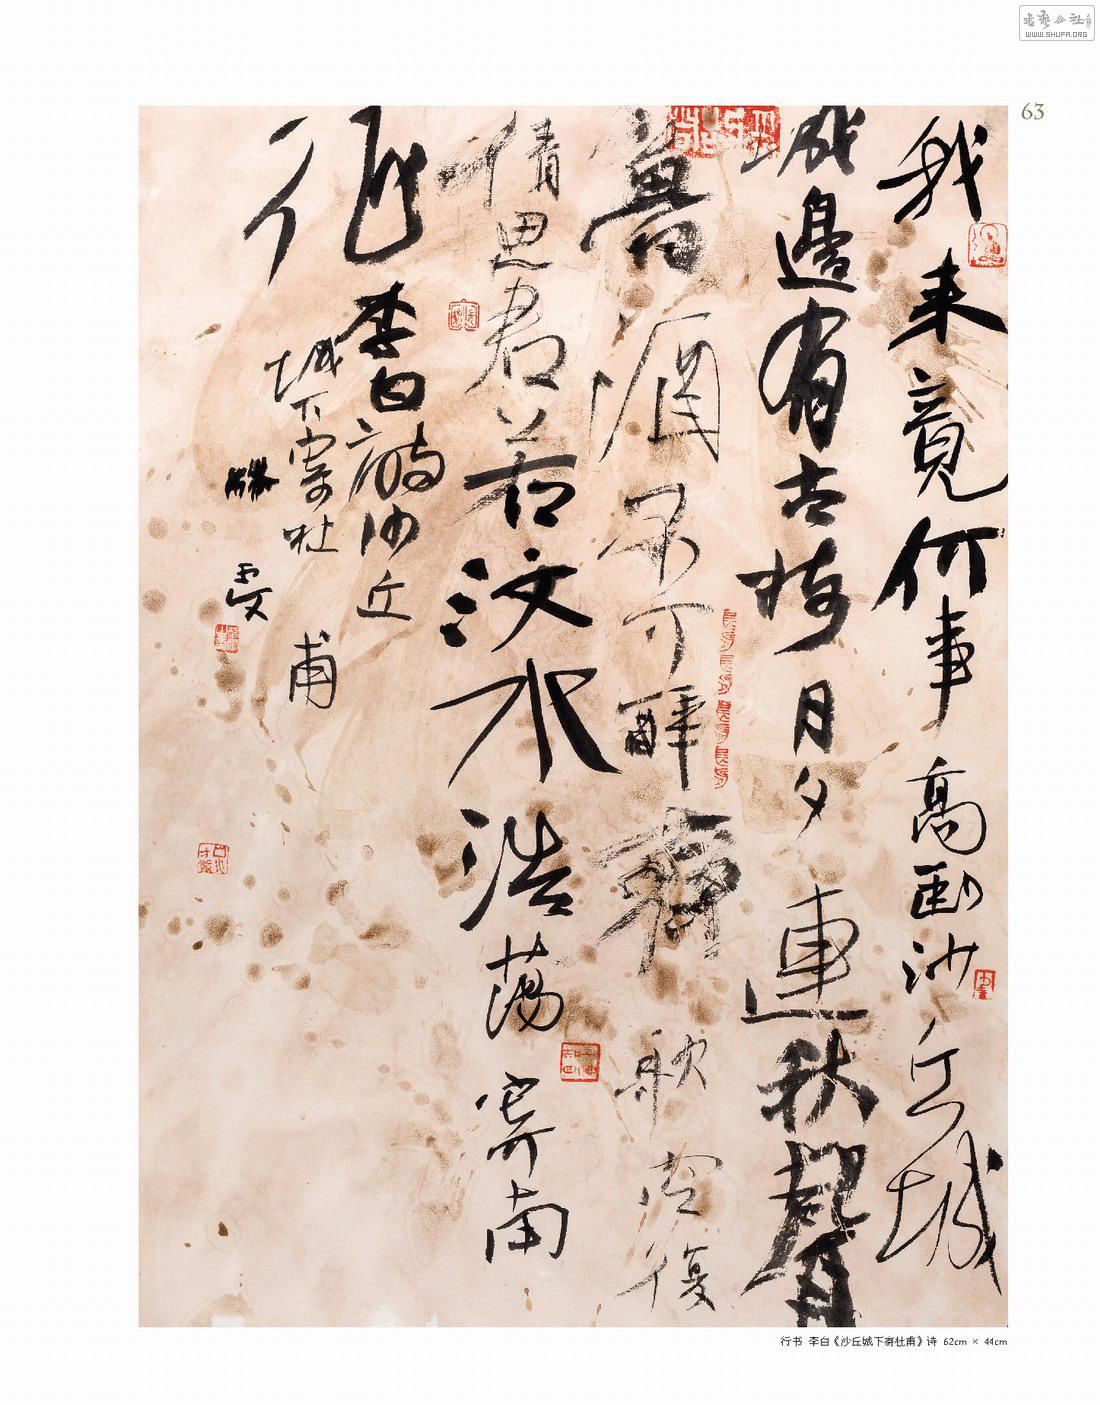 63
我来竟何事高卧沙丘城
城边有古树日夕连秋声
鲁酒不可醉齐歌空复
情思君若汶水浩荡寄南
征
李白诗沙丘
城下寄杜
甫
行书 李白《沙丘城下寄杜甫》诗 62cm × 44cm
WWW.SHUFA.ORG